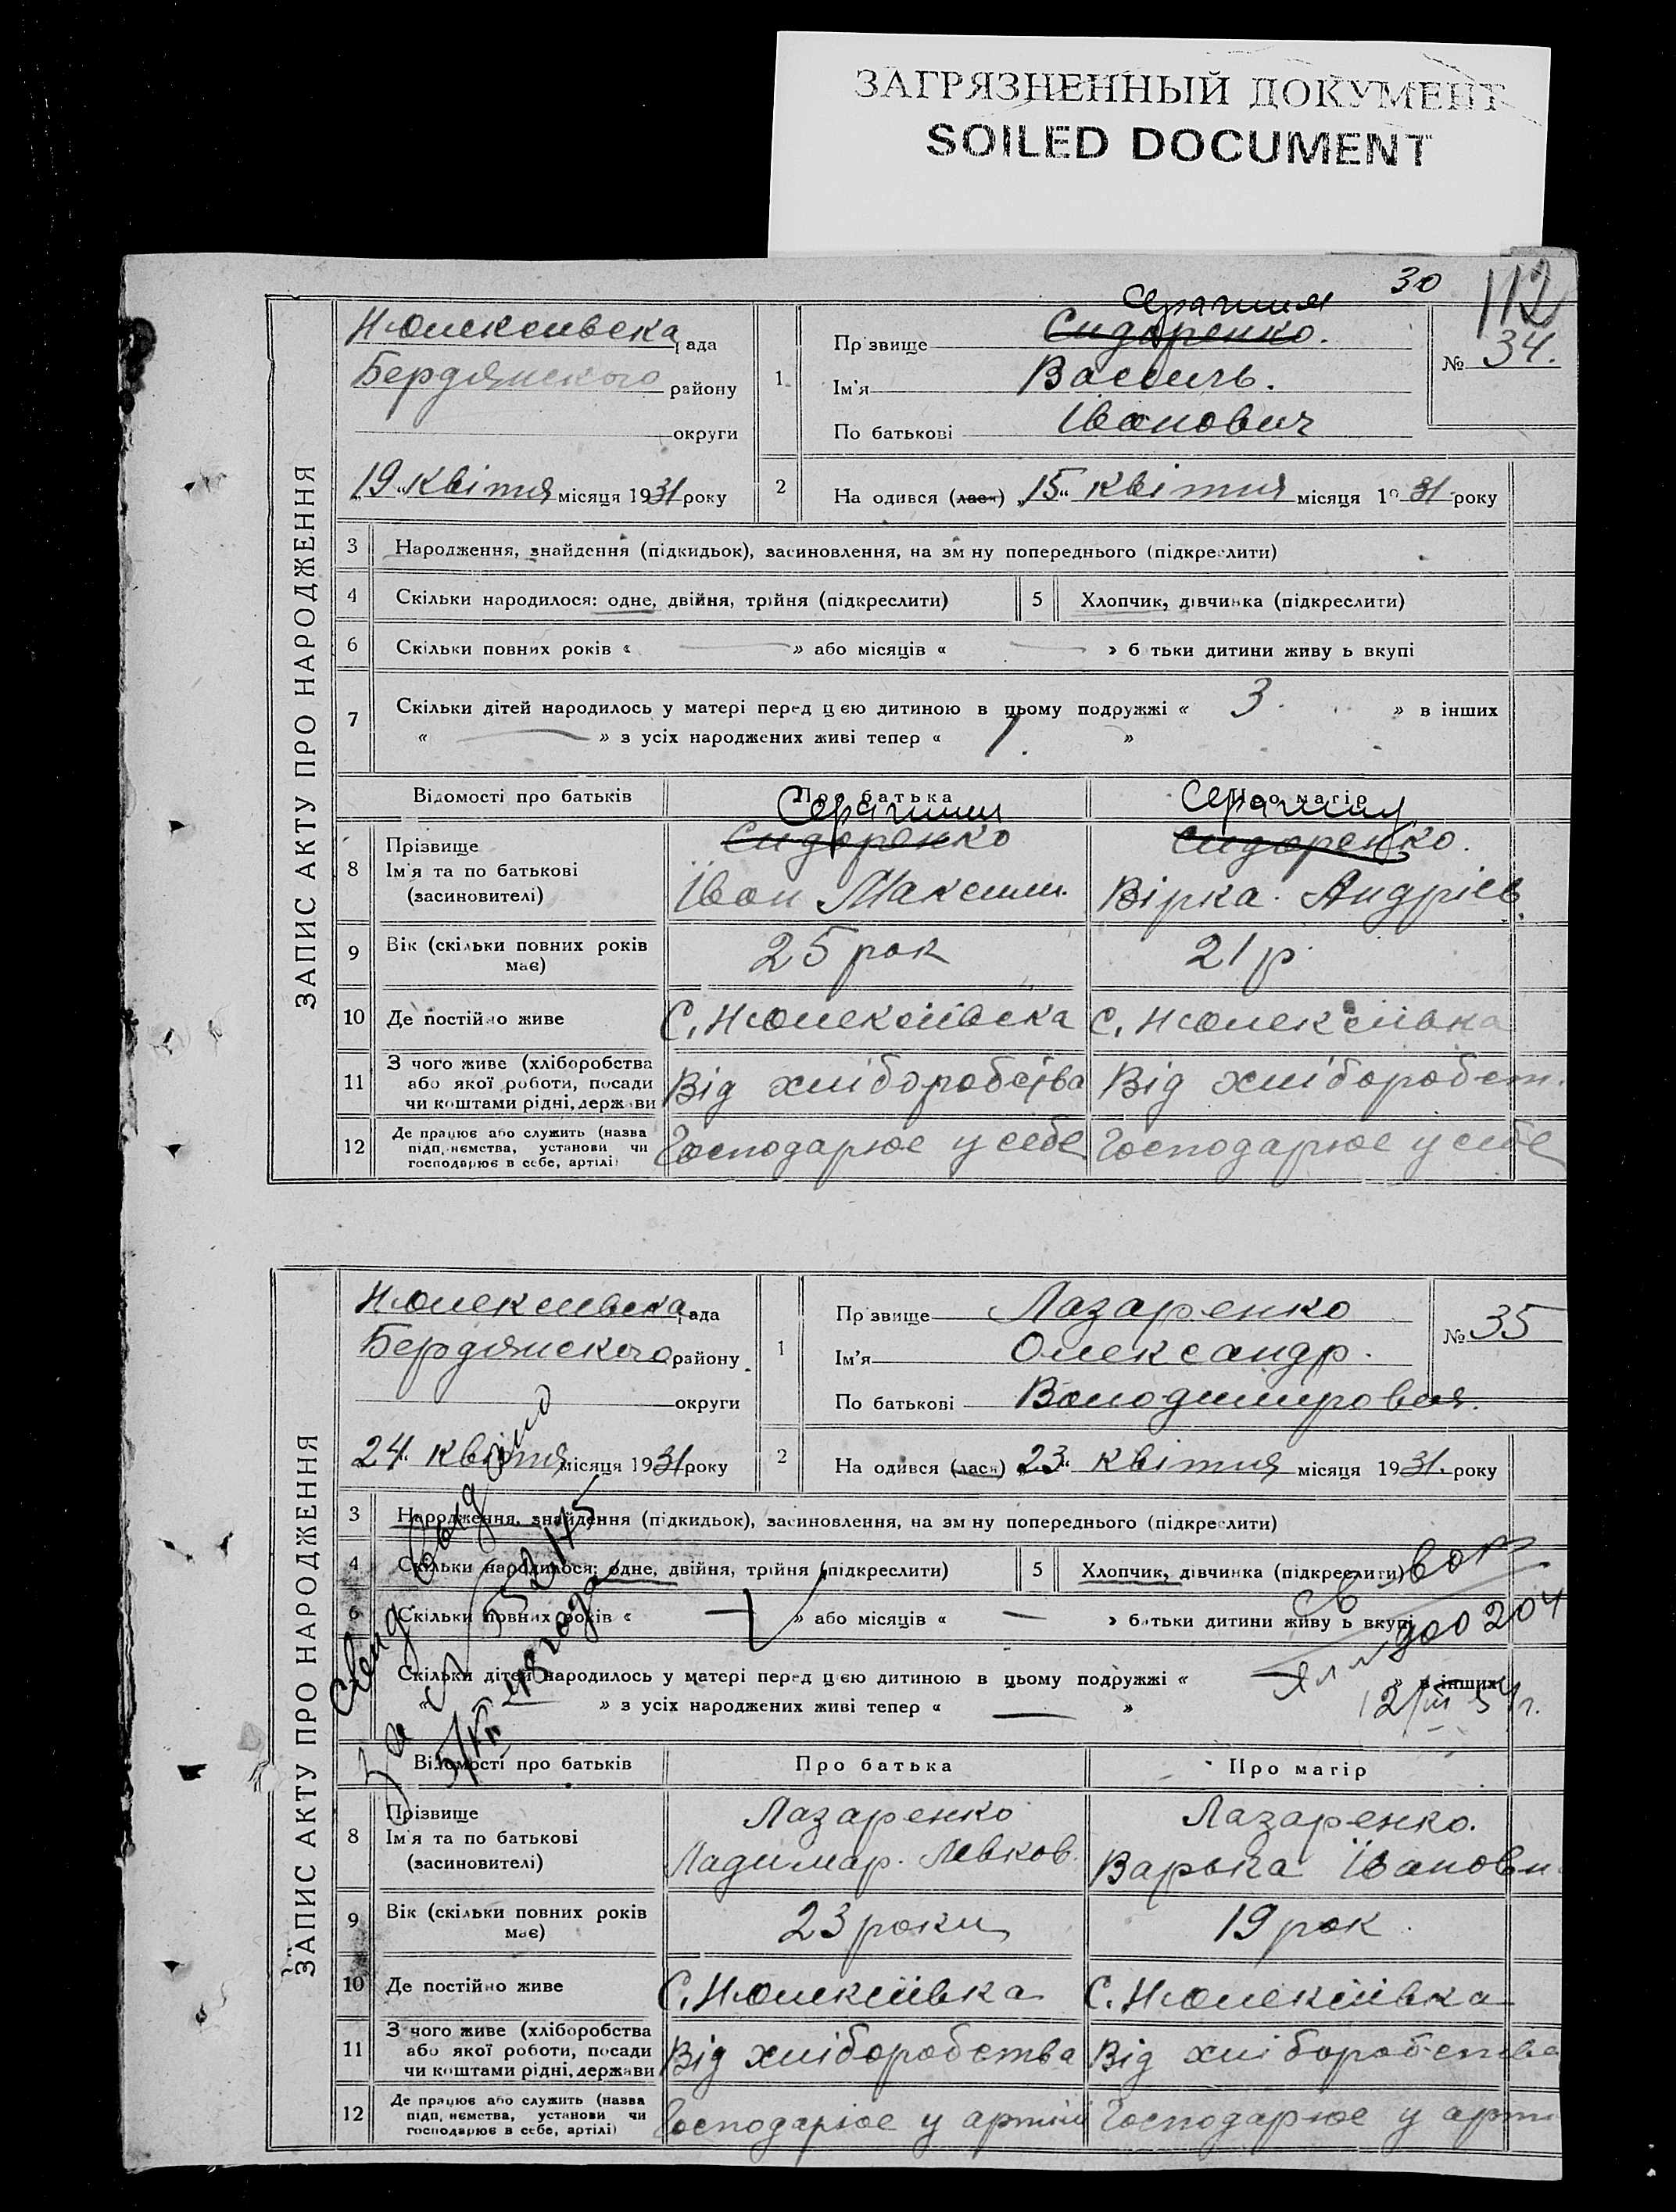 ЗАГРЯЗНЕННЫЙ ДОКУМЕНТ
SOILED DOCUMENT
30
112
ЗАПИС АКТУ ПРО НАРОДЖЕННЯ
Н-Олексіївська рада
Бердянського району
округи
19 квітня місяця 1931 року
1. Прізвище Сидоренко.
Ім'я Василь.
По батькові Іванович
№ 34.
2 На одився (лася) „15“ квітня місяця 1931 року
3 Народження, знайдення (підкидьок), засиновлення, на зм ну попереднього (підкреслити)
4 Скільки народилося: одне, двійня, трійня (підкреслити)
5 Хлопчик, дівчинка (підкреслити)
6 Скільки повних років « — » або місяців « — » б тьки дитини живу ь вкупі
7 Скільки дітей народилось у матері перед цією дитиною в цьому подружжі « 3. » в інших
« — » з усіх народжених живі тепер « 1. »
Відомості про батьків Про батька Про матір
8 Прізвище Ім'я та по батькові (засиновителі)
Сидоренко Сидоренко.
Іван Максим. Вірка Андріев.
9 Вік (скільки повних років має) 25 рок 21 р
10 Де постійно живе С. Н-Олексіївска С. Н-Олексіївка
11 З чого живе (хліборобства або якої роботи, посади чи коштами рідні, держави Від хліборобства Від хліборобст.
12 Де працює або служить (назва підп, немства, установи чи господарює в себе, артілі) Господарює у себе Господарює у себе
ЗАПИС АКТУ ПРО НАРОДЖЕННЯ
Н-Олексіївська рада
Бердянского району
округи
24 квітня місяця 1931 року
1 Прізвище Лазаренко
Ім'я Олександр.
По батькові Володимирович.
№ 35
2 На одився (лася) „23“ квітня місяця 1931. року
3 Народження, знайдення (підкидьок), засиновлення, на зм ну попереднього (підкреслити)
4 Скільки народилося: одне, двійня, трійня (підкреслити)
5 Хлопчик, дівчинка (підкреслити)
6 Скільки повних років « — » або місяців « — » батьки дитини живу ь вкупі
Скільки дітей народилось у матері перед цією дитиною в цьому подружжі « — » в інших
« » з усіх народжених живі тепер « — »
Відомості про батьків Про батька Про матір
8 Прізвище Ім'я та по батькові (засиновителі)
Лазаренко Лазаренко.
Ладимар. Левков. Варька Івановн.
9 Вік (скільки повних років має) 23 роки 19 рок
10 Де постійно живе С. Н-Олексіївка С. Н-Олексіївка
11 З чого живе (хліборобства або якої роботи, посади чи коштами рідні, держави Від хліборобства Від хліборобства
12 Де працює або служить (назва підп, немства, установи чи господарює в себе, артілі) Господарює у артілі Господарює у арті